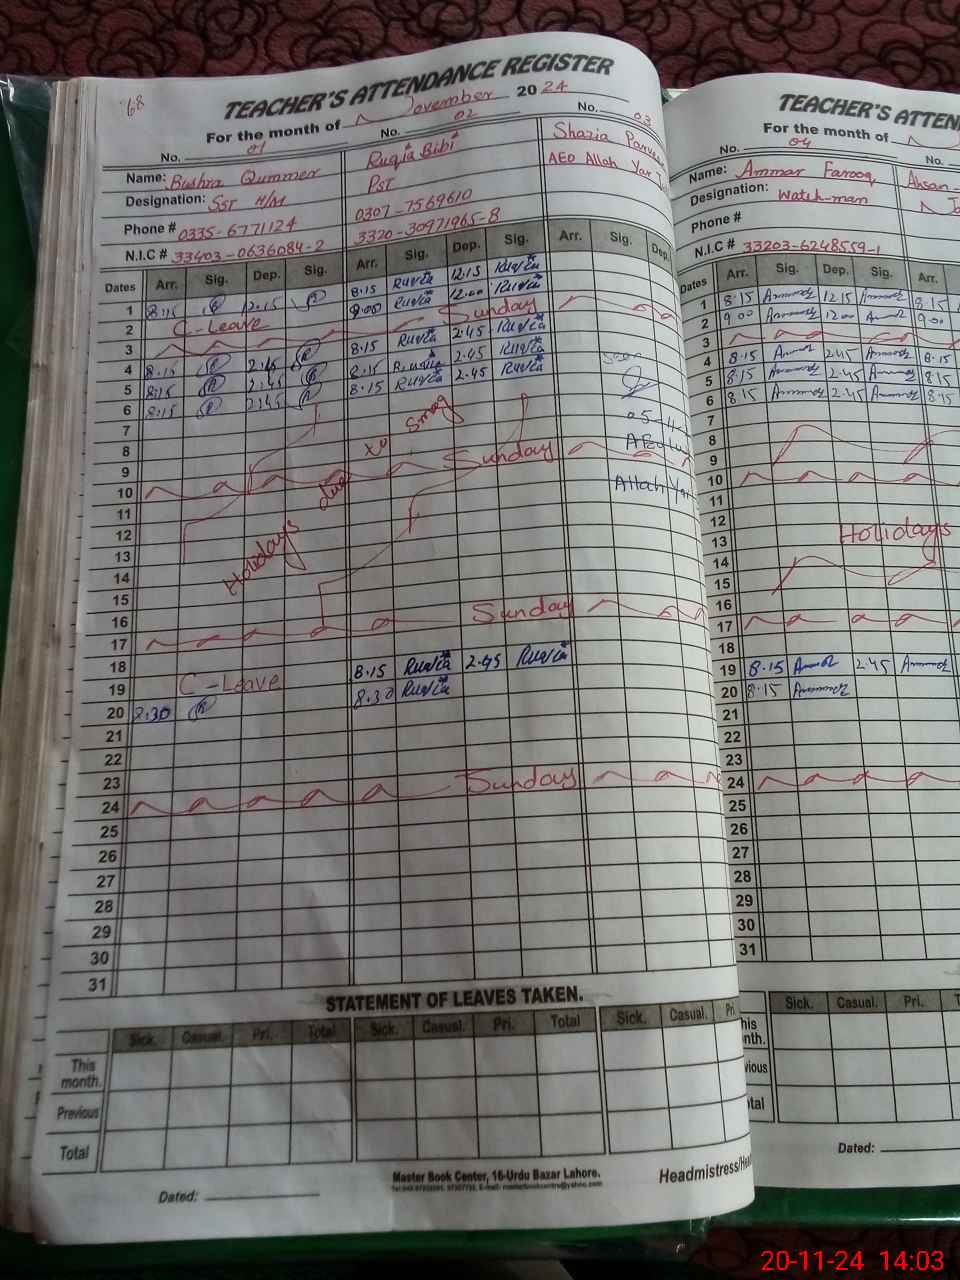 68
TEACHER'S ATTENDANCE REGISTER
For the month of November 2024
No. 01 No. 02 No. 03
Name: Bushra Qummer Ruqia Bibi Shazia
Designation: SST H/M PST AEO Allah Yar
Phone # 0335-6771124 0307-7569610
N.I.C # 33403-0636084-2 3320-30971965-8
Dates Arr. Sig. Dep. Sig. Arr. Sig. Dep. Sig. Arr. Sig. Dep.
1 8:15 12.15 8.15 Ruqia 12.15 Ruqia
2 C-Leave 9.00 Ruqia 12.00 Ruqia
3 Sunday
4 8:15 2.45 8.15 Ruqia 2.45 Ruqia
5 8:15 2:45 8.15 Ruqia 2.45 Ruqia Seen
6 8:15 2:45 8.15 Ruqia 2.45 Ruqia
7 05-11-
8 AEO
9
10 Sunday Allah Yar
11
12
13
Holidays due to Smog
14
15
16
17 Sunday
18
19 C-Leave 8.15 Ruqia 2.45 Ruqia
20 8:30 8.30 Ruqia
21
22
23
24 Sunday
25
26
27
28
29
30
31
STATEMENT OF LEAVES TAKEN.
Sick. Casual. Pri. Total Sick. Casual. Pri. Total Sick. Casual. Pri
This month.
Previous
Total
Master Book Center, 16-Urdu Bazar Lahore.
Dated: Headmistress/Hea
TEACHER'S ATTEN
For the month of
No. 04 No.
Name: Ammar Farooq Ahsan
Designation: Watch-man
Phone #
N.I.C # 33203-6248559-1
Dates Arr. Sig. Dep. Sig. Arr.
1 8.15 Ammar 12.15 Ammar 8.15
2 9.00 Ammar 12.00 Ammar 9.00
3
4 8.15 Ammar 2.45 Ammar 8.15
5 8.15 Ammar 2.45 Ammar 8.15
6 8.15 Ammar 2.45 Ammar 8.15
7
8
9
10
11
12
13 Holidays
14
15
16
17
18
19 8.15 Ammar 2.45 Ammar
20 8.15 Ammar
21
22
23
24
25
26
27
28
29
30
31
Sick. Casual. Pri. T
his nth.
vious
tal
Dated:
20-11-24 14:03